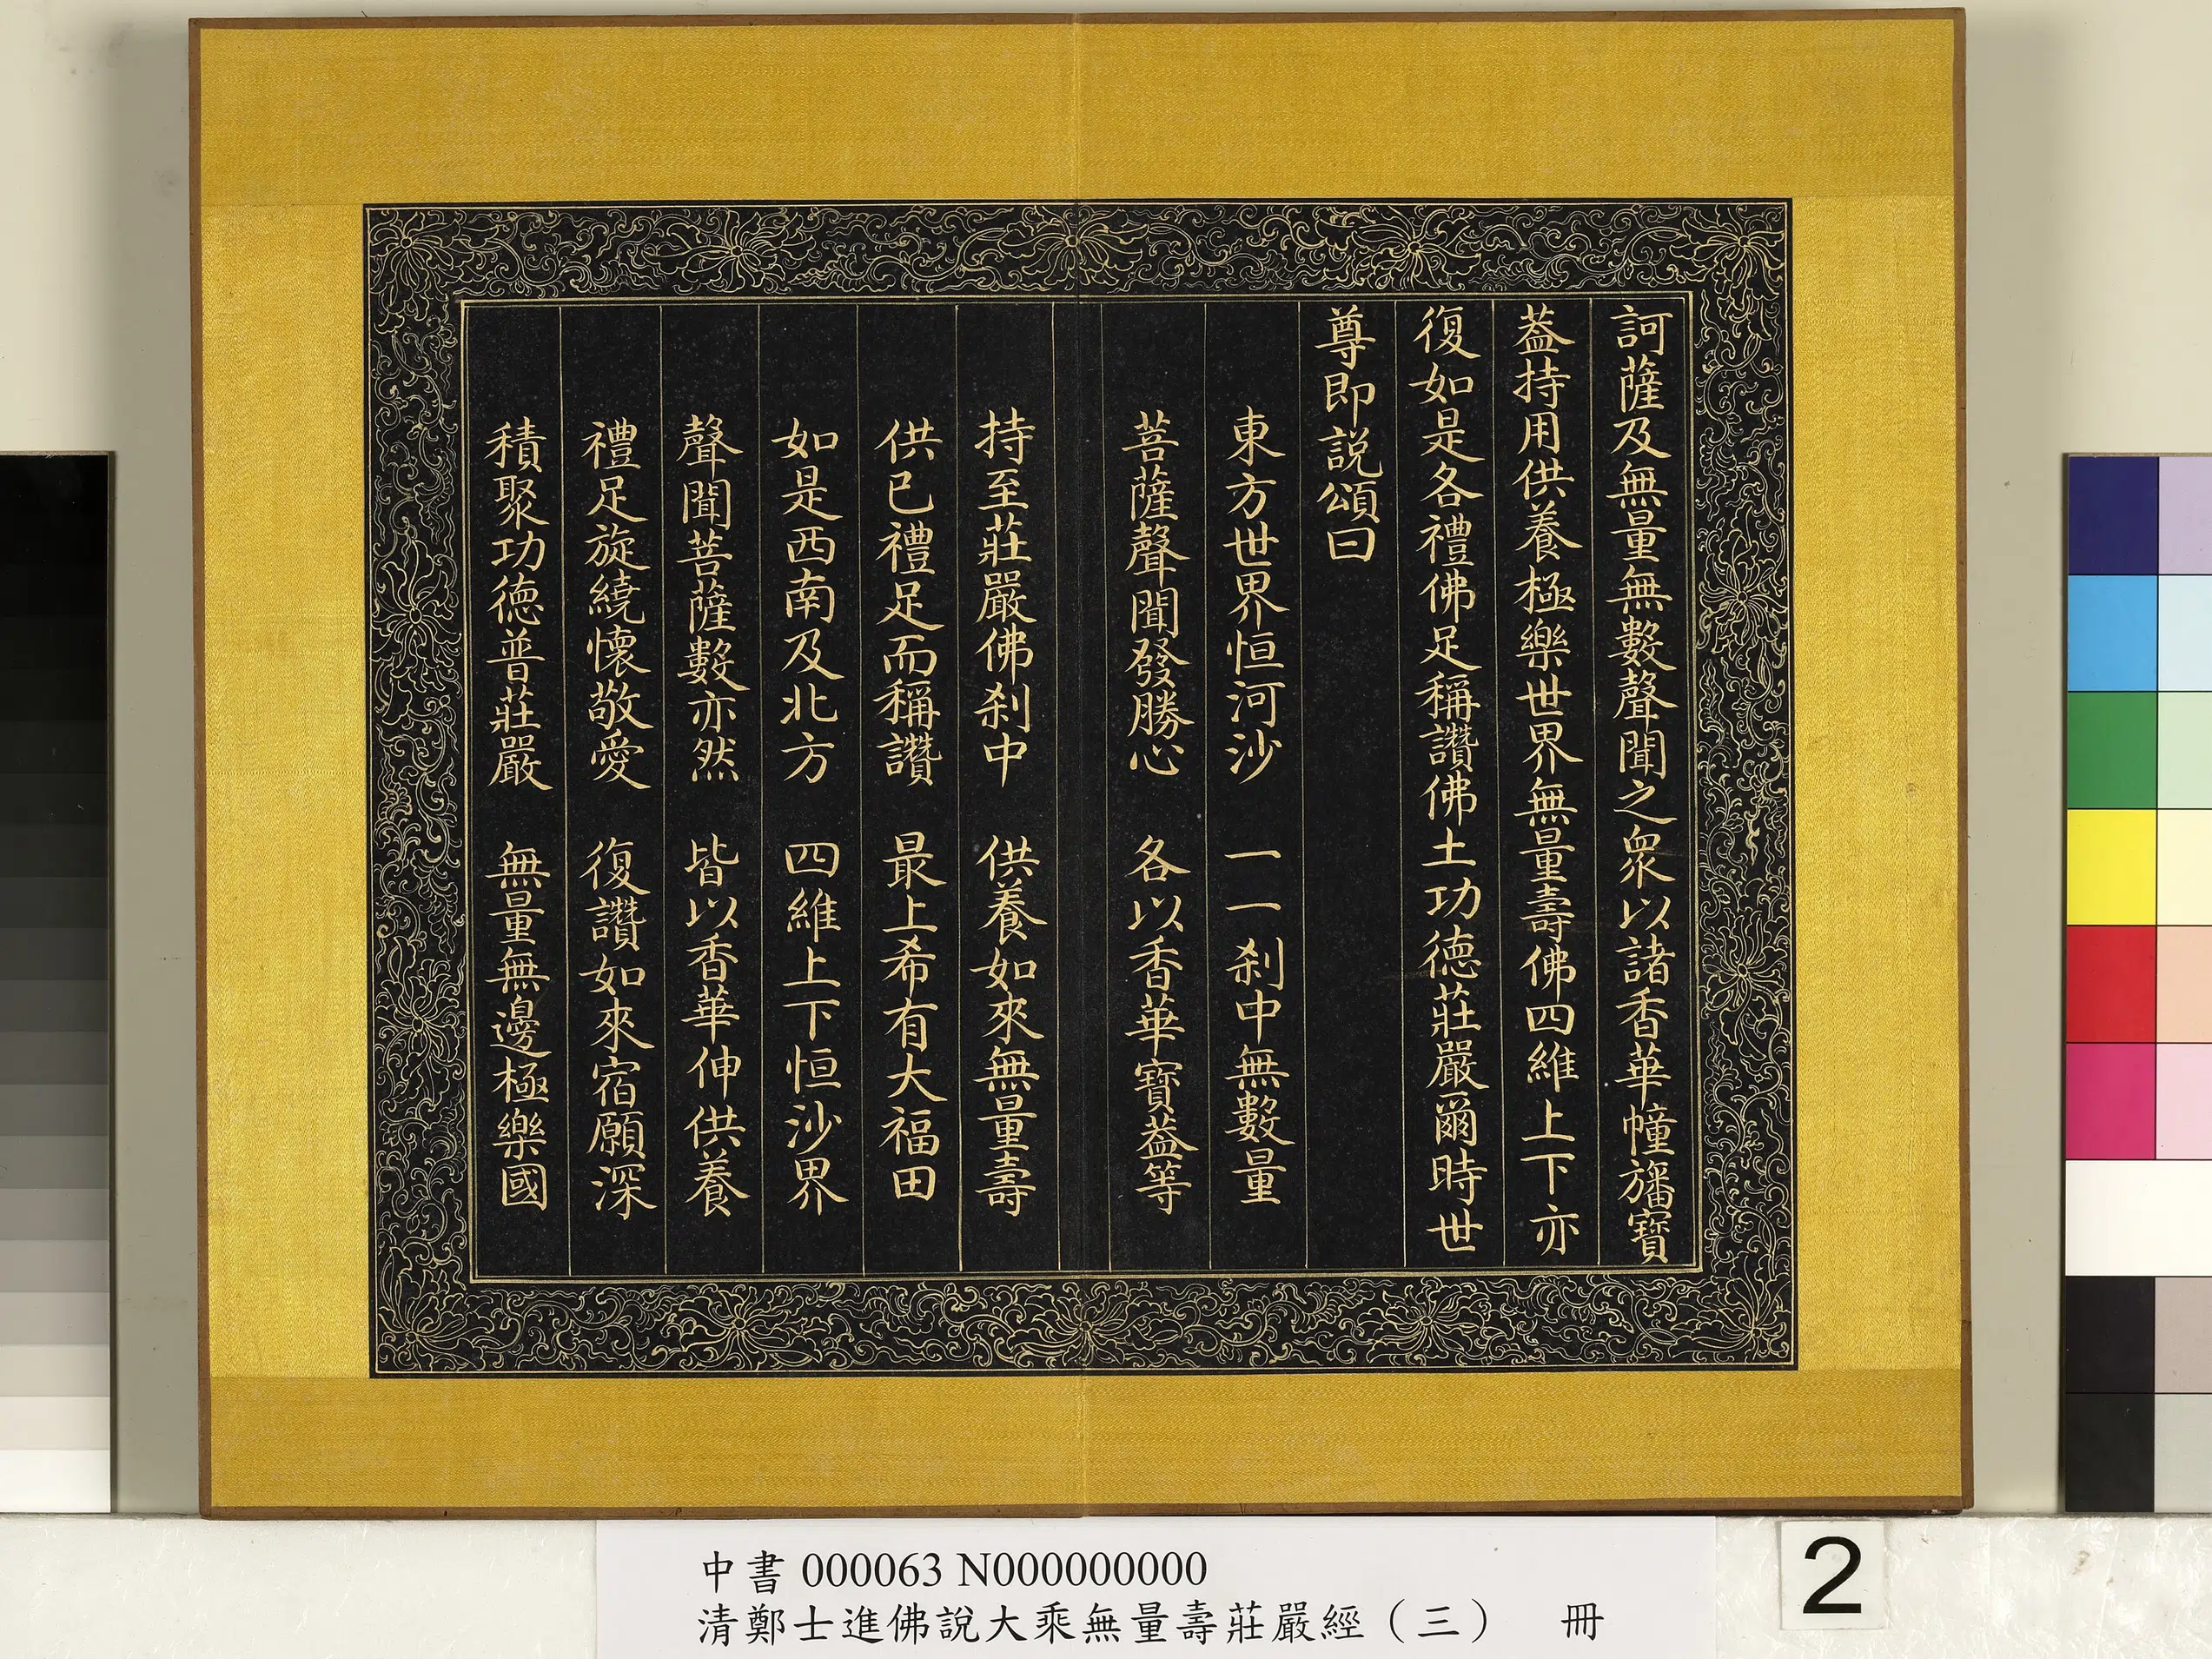 訶薩及無量無數聲聞之衆以諸香華幢旛寶
葢持用供養極樂世界無量壽佛四維上下亦
復如是各禮佛足稱讚佛土功德莊嚴爾時世
尊即説頌曰
東方世界恒河沙　一一刹中無數量
菩薩聲聞發勝心　各以香華寶葢等
持至莊嚴佛刹中　供養如來無量壽
供已禮足而稱讚　最上希有大福田
如是西南及北方　四維上下恒沙界
聲聞菩薩數亦然　皆以香華伸供養
禮足旋繞懷敬愛　復讚如來宿願深
積聚功德普莊嚴　無量無邊極樂國
中書 000063 N000000000
清鄭士進佛說大乘無量壽莊嚴經（三）　冊
2